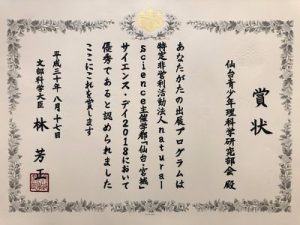 賞状
仙台青少年理科学研究部会 殿
あなたがたの出展プログラムは
特定非営利活動法人natural
science主催学都「仙台・宮城」
サイエンス・デイ2018において
優秀であると認められました
ここにこれを賞します
平成三十年八月十七日
文部科学大臣 林 芳正